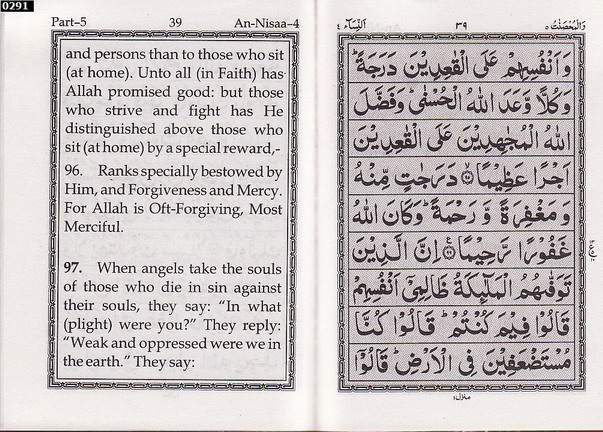 0291
Part–5 39 An-Nisaa–4
and persons than to those who sit
(at home). Unto all (in Faith) has
Allah promised good: but those
who strive and fight has He
distinguished above those who
sit (at home) by a special reward,-
96. Ranks specially bestowed by
Him, and Forgiveness and Mercy.
For Allah is Oft-Forgiving, Most
Merciful.
97. When angels take the souls
of those who die in sin against
their souls, they say: “In what
(plight) were you?” They reply:
“Weak and oppressed were we in
the earth.” They say:
وَالْمُحْصَنٰتُ ٥ ٣٩ اَلنِّسَآء ٤
وَ اَنْفُسِهِمْ عَلَى الْقٰعِدِيْنَ دَرَجَةً ؕ
وَكُلًّا وَّعَدَ اللّٰهُ الْحُسْنٰى ؕ وَفَضَّلَ
اللّٰهُ الْمُجٰهِدِيْنَ عَلَى الْقٰعِدِيْنَ
اَجْرًا عَظِيْمًا ۙ‏ دَرَجٰتٍ مِّنْهُ
وَ مَغْفِرَةً وَّ رَحْمَةً ؕ وَكَانَ اللّٰهُ
غَفُوْرًا رَّحِيْمًا اِنَّ الَّذِيْنَ
تَوَفّٰىهُمُ الْمَلٰٓئِكَةُ ظَالِمِيْٓ اَنْفُسِهِمْ
قَالُوْا فِيْمَ كُنْتُمْ ؕ قَالُوْا كُنَّا
مُسْتَضْعَفِيْنَ فِى الْاَرْضِ ؕ قَالُوْٓا
منزل١